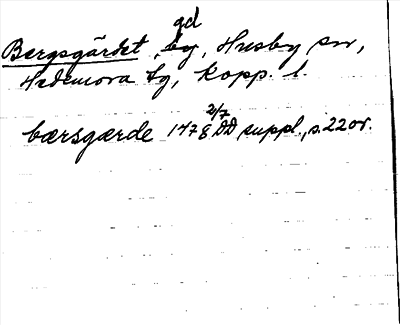 gd
Bergsgärdet, by, Husby sn,
Hedemora tg, Kopp. l.
2/7
bærsgærde 1478 DD suppl., s. 220r.